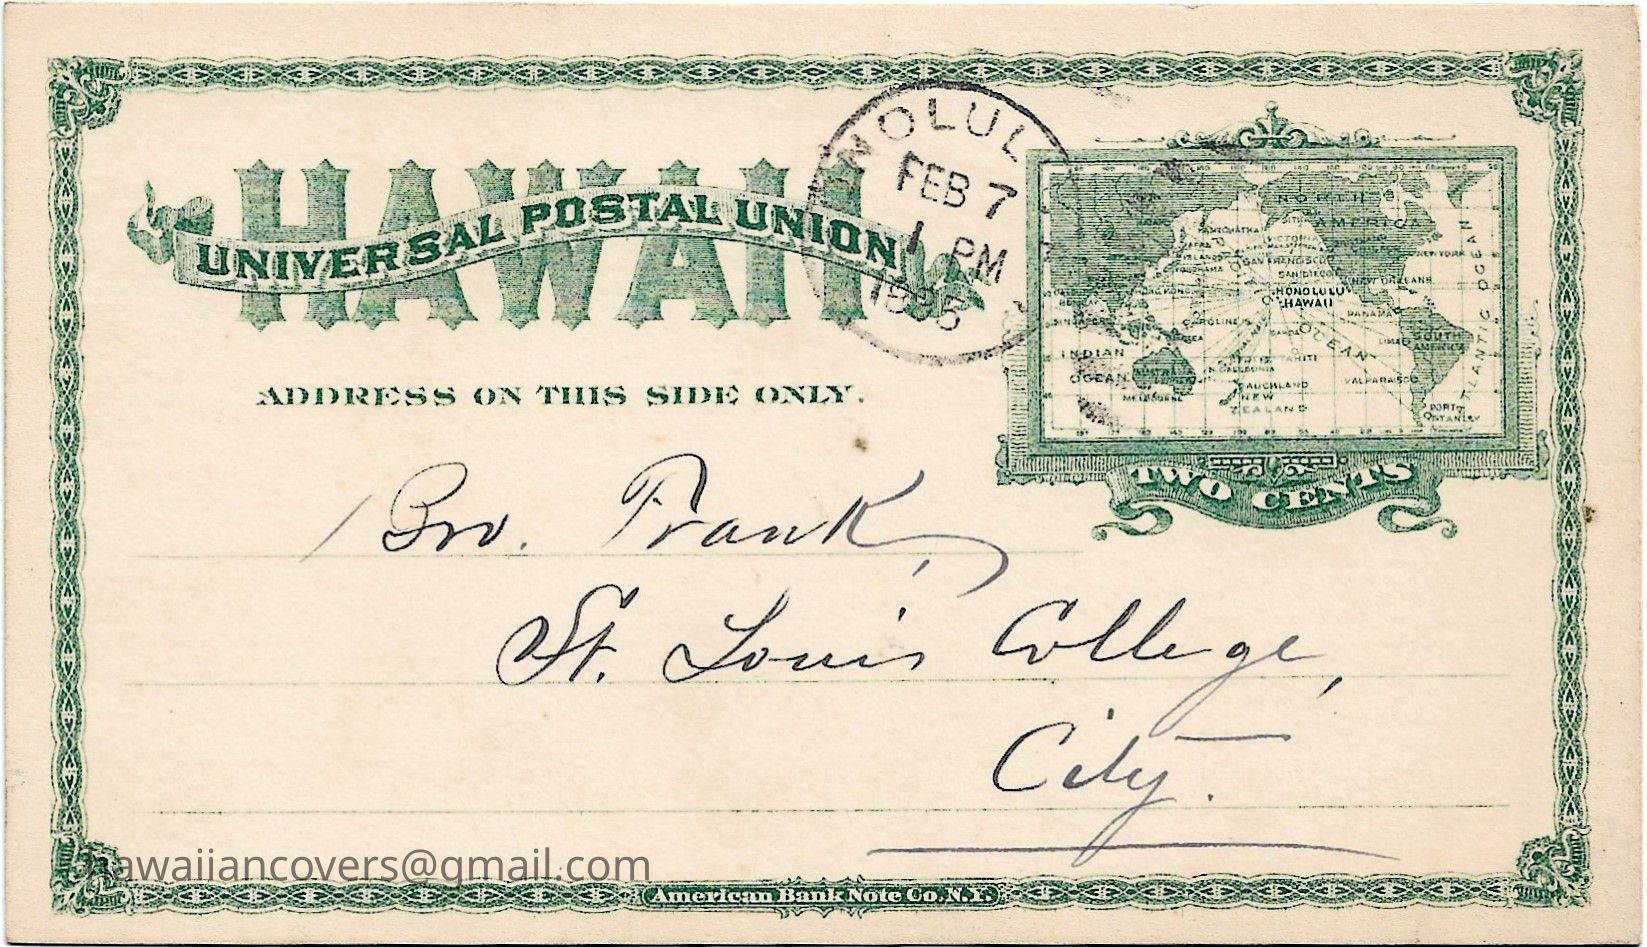 HAWAII
UNIVERSAL POSTAL UNION
NOLUL
FEB 7
1 PM
ADDRESS ON THIS SIDE ONLY.
NORTH
AMERICA
KAMTCHATKA
VICTORIA
SAN FRANCISCO
SAN DIEGO
NEW YORK
NEW ORLEANS
YOKOHAMA
HONOLULU
HAWAII
PANAMA
SINGAPORE
CAROLINE IS
SOUTH
AMERICA
LIMA
INDIAN
OCEAN
PACIFIC OCEAN
ATLANTIC OCEAN
TAHITI
AUCKLAND
NEW
ZEALAND
VALPARAISO
MELBOURNE
PORT
STANLEY
TWO CENTS
Bro. Frank,
St. Louis College,
City.
hawaiiancovers@gmail.com
American Bank Note Co. N.Y.